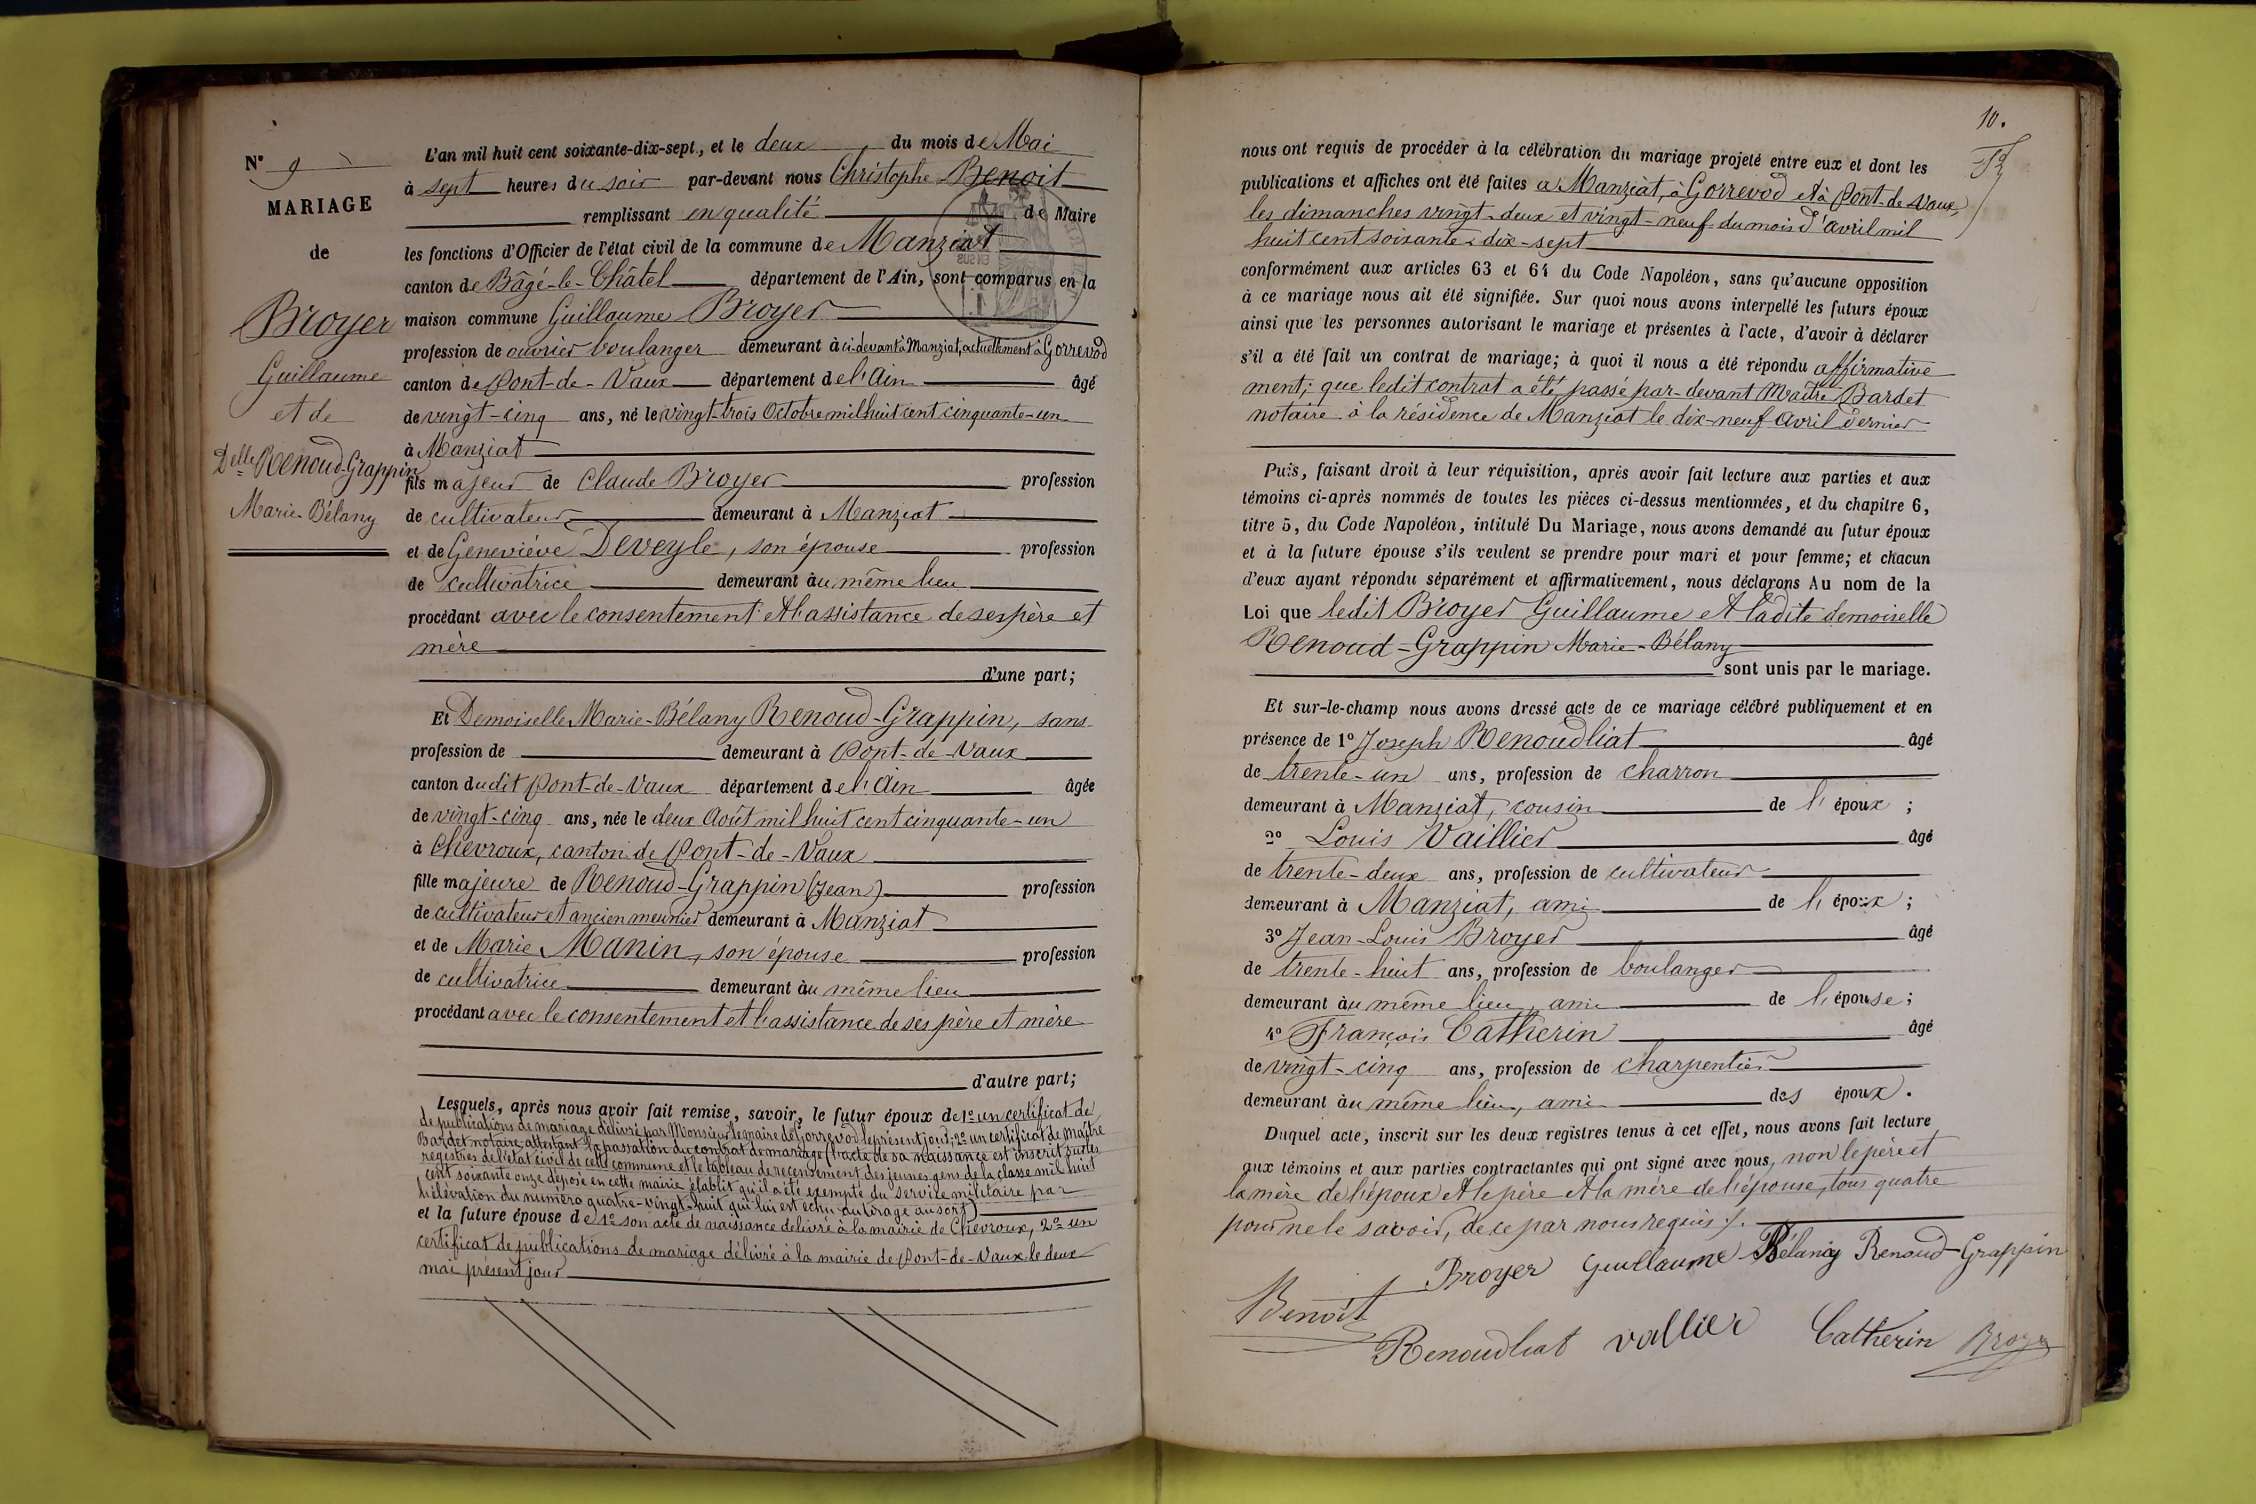 N° 9
MARIAGE
de
Broyer
Guillaume
et de
Delle Renoud-Grappin
Marie-Bélany
L'an mil huit cent soixante-dix-sept, et le deux du mois de Mai
à sept heures du soir par-devant nous Christophe Benoit
remplissant en qualité de Maire
les fonctions d'Officier de l'état civil de la commune de Manziat
canton de Bâgé-le-Châtel département de l'Ain, sont comparus en la
maison commune Guillaume Broyer
profession de ouvrier boulanger demeurant à ci-devant à Manziat, actuellement à Gorrevod
canton de Pont-de-Vaux département de l'Ain âgé
de vingt-cinq ans, né le vingt-trois Octobre mil huit cent cinquante-un
à Manziat
fils majeur de Claude Broyer profession
de cultivateur demeurant à Manziat
et de Geneviève Deveyle, son épouse profession
de cultivatrice demeurant au même lieu
procédant avec le consentement et l'assistance de ses père et
mère
d'une part;
Et Demoiselle Marie-Bélany Renoud-Grappin, sans
profession de demeurant à Pont-de-Vaux
canton dudit Pont-de-Vaux département de l'Ain âgée
de vingt-cinq ans, née le deux Août mil huit cent cinquante-un
à Chevroux, canton de Pont-de-Vaux
fille majeure de Renoud-Grappin (Jean) profession
de cultivateur et ancien meunier demeurant à Manziat
et de Marie Manin, son épouse profession
de cultivatrice demeurant au même lieu
procédant avec le consentement et l'assistance de ses père et mère
d'autre part;
Lesquels, après nous avoir fait remise, savoir, le futur époux de 1° un certificat de
de publications de mariage délivré par Monsieur le maire de Gorrevod le présent jour; 2° un certificat de Maître
Bardet notaire attestant la passation du contrat de mariage (l'acte de sa naissance est inscrit sur les
registres de l'état civil de cette commune et le tableau de recensement des jeunes gens de la classe mil huit
cent soixante onze déposé en cette mairie établit qu'il a été exempté du service militaire par
l'élévation du numéro quatre-vingt-huit qui lui est échu au tirage au sort)
et la future épouse de 1° son acte de naissance délivré à la mairie de Chevroux, 2° un
certificat de publications de mariage délivré à la mairie de Pont-de-Vaux le deux
mai présent jour
10.
nous ont requis de procéder à la célébration du mariage projeté entre eux et dont les
publications et affiches ont été faites à Manziat, à Gorrevod et à Pont-de-Vaux,
les dimanches vingt-deux et vingt-neuf du mois d'avril mil
huit cent soixante-dix-sept
conformément aux articles 63 et 64 du Code Napoléon, sans qu'aucune opposition
à ce mariage nous ait été signifiée. Sur quoi nous avons interpellé les futurs époux
ainsi que les personnes autorisant le mariage et présentes à l'acte, d'avoir à déclarer
s'il a été fait un contrat de mariage; à quoi il nous a été répondu affirmative
ment; que ledit contrat a été passé par-devant Maître Bardet
notaire à la résidence de Manziat le dix-neuf Avril dernier
Puis, faisant droit à leur réquisition, après avoir fait lecture aux parties et aux
témoins ci-après nommés de toutes les pièces ci-dessus mentionnées, et du chapitre 6,
titre 5, du Code Napoléon, intitulé Du Mariage, nous avons demandé au futur époux
et à la future épouse s'ils veulent se prendre pour mari et pour femme; et chacun
d'eux ayant répondu séparément et affirmativement, nous déclarons Au nom de la
Loi que ledit Broyer Guillaume et ladite demoiselle
Renoud-Grappin Marie-Bélany
sont unis par le mariage.
Et sur-le-champ nous avons dressé acte de ce mariage célébré publiquement et en
présence de 1° Joseph Renoudliat âgé
de trente-un ans, profession de charron
demeurant à Manziat, cousin de l'époux;
2° Louis Vaillier âgé
de trente-deux ans, profession de cultivateur
demeurant à Manziat, ami de l'époux;
3° Jean-Louis Broyer âgé
de trente-huit ans, profession de boulanger
demeurant au même lieu, ami de l'épouse;
4° François Catherin âgé
de vingt-cinq ans, profession de charpentier
demeurant au même lieu, ami des époux.
Duquel acte, inscrit sur les deux registres tenus à cet effet, nous avons fait lecture
aux témoins et aux parties contractantes qui ont signé avec nous, non le père et
la mère de l'époux et le père et la mère de l'épouse, tous quatre
pour ne le savoir, de ce par nous requis /.
Broyer Guillaume Bélany Renoud-Grappin
Benoit
Renoudliat Vallier Catherin Broyer